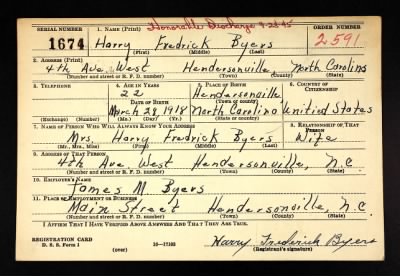 Honorable Discharge 9-28-45
SERIAL NUMBER 1. NAME (Print) ORDER NUMBER
1674 Harry Fredrick Byers 2591
(First) (Middle) (Last)
2. ADDRESS (Print)
4th Ave West Hendersonville, North Carolina
(Number and street or R. F. D. number) (Town) (County) (State)
3. TELEPHONE 4. AGE IN YEARS 5. PLACE OF BIRTH 6. COUNTRY OF CITIZENSHIP
22 Hendersonville
DATE OF BIRTH (Town or county)
March 29, 1918 North Carolina United States
(Exchange) (Number) (Mo.) (Day) (Yr.) (State or country)
7. NAME OF PERSON WHO WILL ALWAYS KNOW YOUR ADDRESS 8. RELATIONSHIP OF THAT PERSON
Mrs. Harry Fredrick Byers Wife
(Mr., Mrs., Miss) (First) (Middle) (Last)
9. ADDRESS OF THAT PERSON
4th Ave. West Hendersonville, N.C.
(Number and street or R. F. D. number) (Town) (County) (State)
10. EMPLOYER'S NAME
James M. Byers
11. PLACE OF EMPLOYMENT OR BUSINESS
Main Street Hendersonville, N.C.
(Number and street or R. F. D. number) (Town) (County) (State)
I AFFIRM THAT I HAVE VERIFIED ABOVE ANSWERS AND THAT THEY ARE TRUE.
REGISTRATION CARD
D. S. S. Form 1 (over) 16-17105 Harry Fredrick Byers
(Registrant's signature)